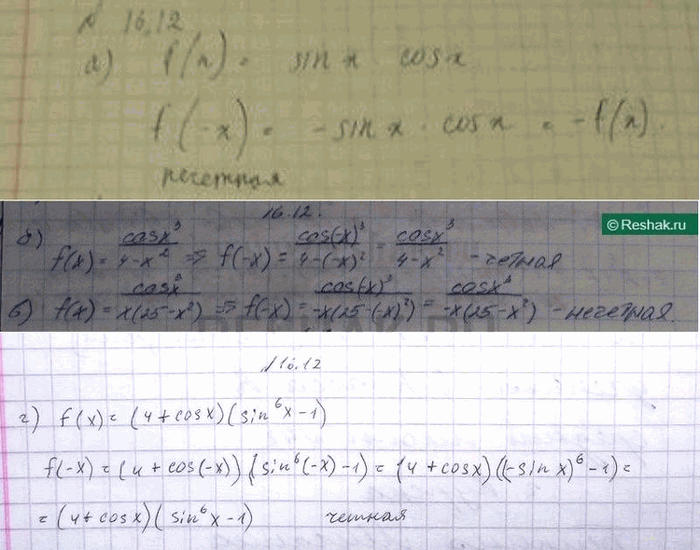 № 16,12
а) f(x) = sin x cos x
f(-x) = - sin x · cos x = - f(x).
нечетная
16.12.
© Reshak.ru
б) f(x) = cosx³/4-x² => f(-x) = cos(-x)³/4-(-x)² = cosx³/4-x² - четная
в) f(x) = cosx³/x(25-x²) => f(-x) = cos(-x)³/-x(25-(-x)²) = cosx³/-x(25-x²) - нечетная.
№16.12
г) f(x) = (4+cosx)(sin⁶x-1)
f(-x) = (4+cos(-x))(sin⁶(-x)-1) = (4+cosx)((-sin x)⁶-1) =
= (4+cosx)(sin⁶x-1) четная